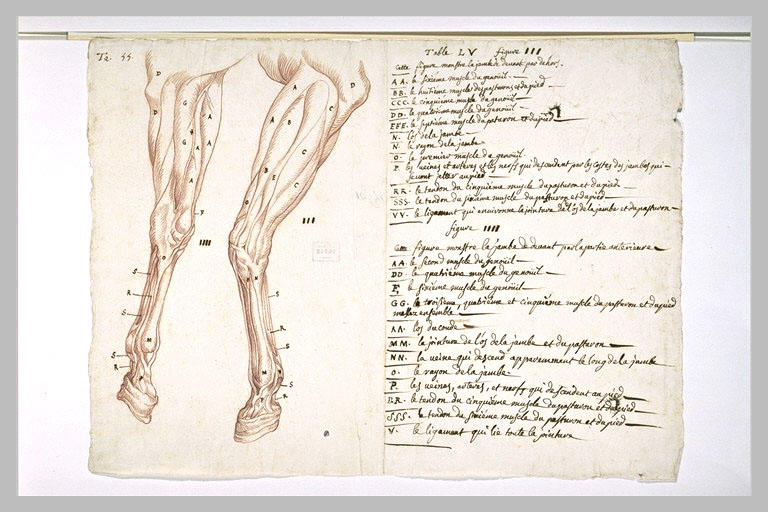 Ta. 55.
Table LV figure III
Cette figure monstre la jambe de devant par dehors.
AA. le sixieme muscle du genoüil
BB. le huitieme muscle du pasturon et du pied
CCC. le cinquieme muscle du genoüil
DD. le quatrieme muscle du genoüil
EEE. le septieme muscle du pasturon et du pied
N. l'os de la jambe
N. le rayon de la jambe
O. le premier muscle du genoüil
P. les veines et arteres et les nerfs qui descendent par les costes des jambes qui
se vont jetter au pied
RR. le tendon du cinquieme muscle du pasturon et du pied
SSS. le tendon du sixieme muscle du pasturon et du pied
VV. le ligament qui environne la jointure de l'os de la jambe et du pasturon
figure IIII
Cette figure monstre la jambe de devant par la partie anterieure
AA. le second muscle du genoüil
DD. le quatrieme muscle du genoüil
F. le sixieme muscle du genoüil
GG. le troisieme, quatrieme et cinquieme muscle du pasturon et du pied
ensemble
ΛΛ. l'os du coude
MM. la jointure de l'os de la jambe et du pasturon
NN. la veine qui descend apparemment le long de la jambe
O. le rayon de la jambe
P. les veines, arteres, et nerfs qui descendent au pied
RR. le tendon du cinquieme muscle du pasturon et du pied
SSS. le tendon du sixieme muscle du pasturon et du pied
V. le ligament qui lie toute la jointure
III
IIII